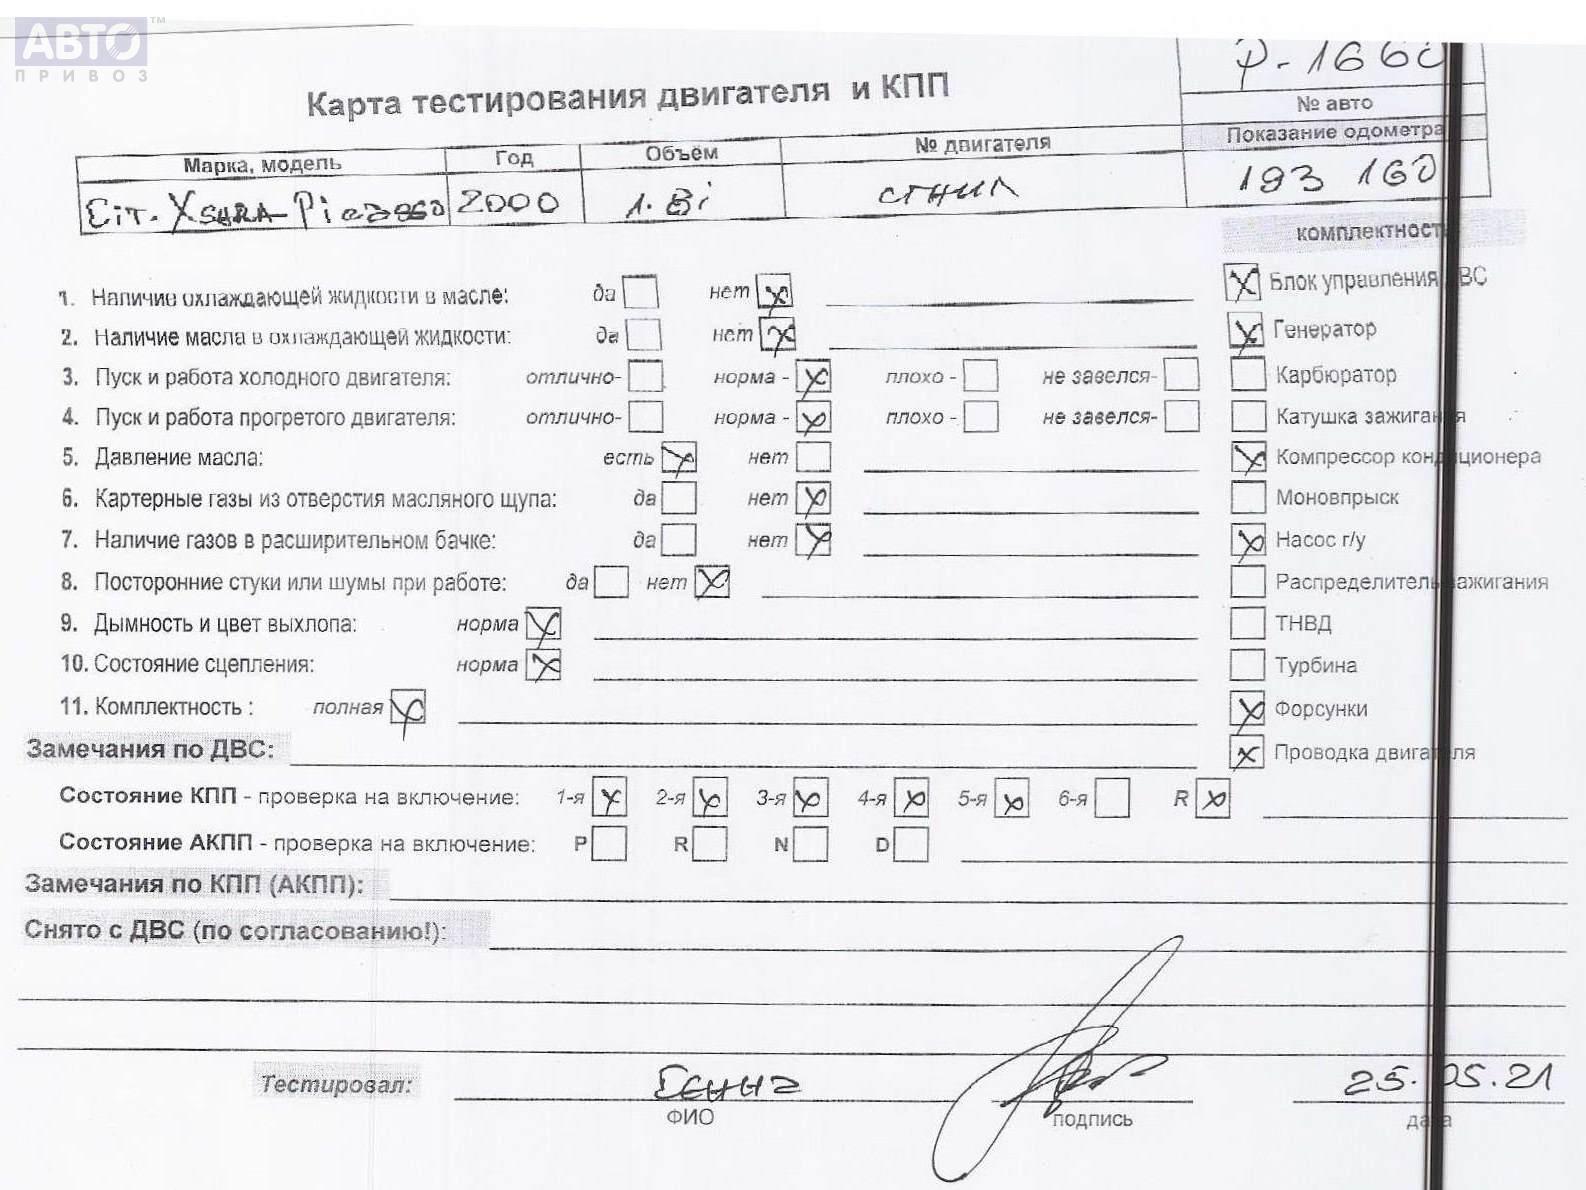 АВТО™
ПРИВОЗ
Р-1660
Карта тестирования двигателя и КПП
№ авто
Марка, модель Год Объём № двигателя Показание одометра
Cit. Xsara Picasso 2000 1.8i сгнил 193 160
комплектность
1. Наличие охлаждающей жидкости в масле: да нет Блок управления ДВС
2. Наличие масла в охлаждающей жидкости: да нет Генератор
3. Пуск и работа холодного двигателя: отлично- норма - плохо - не завелся- Карбюратор
4. Пуск и работа прогретого двигателя: отлично- норма - плохо - не завелся- Катушка зажигания
5. Давление масла: есть нет Компрессор кондиционера
6. Картерные газы из отверстия масляного щупа: да нет Моновпрыск
7. Наличие газов в расширительном бачке: да нет Насос г/у
8. Посторонние стуки или шумы при работе: да нет Распределитель зажигания
9. Дымность и цвет выхлопа: норма ТНВД
10. Состояние сцепления: норма Турбина
11. Комплектность : полная Форсунки
Замечания по ДВС: Проводка двигателя
Состояние КПП - проверка на включение: 1-я 2-я 3-я 4-я 5-я 6-я R
Состояние АКПП - проверка на включение: P R N D
Замечания по КПП (АКПП):
Снято с ДВС (по согласованию!):
Тестировал: 25.05.21
ФИО подпись дата